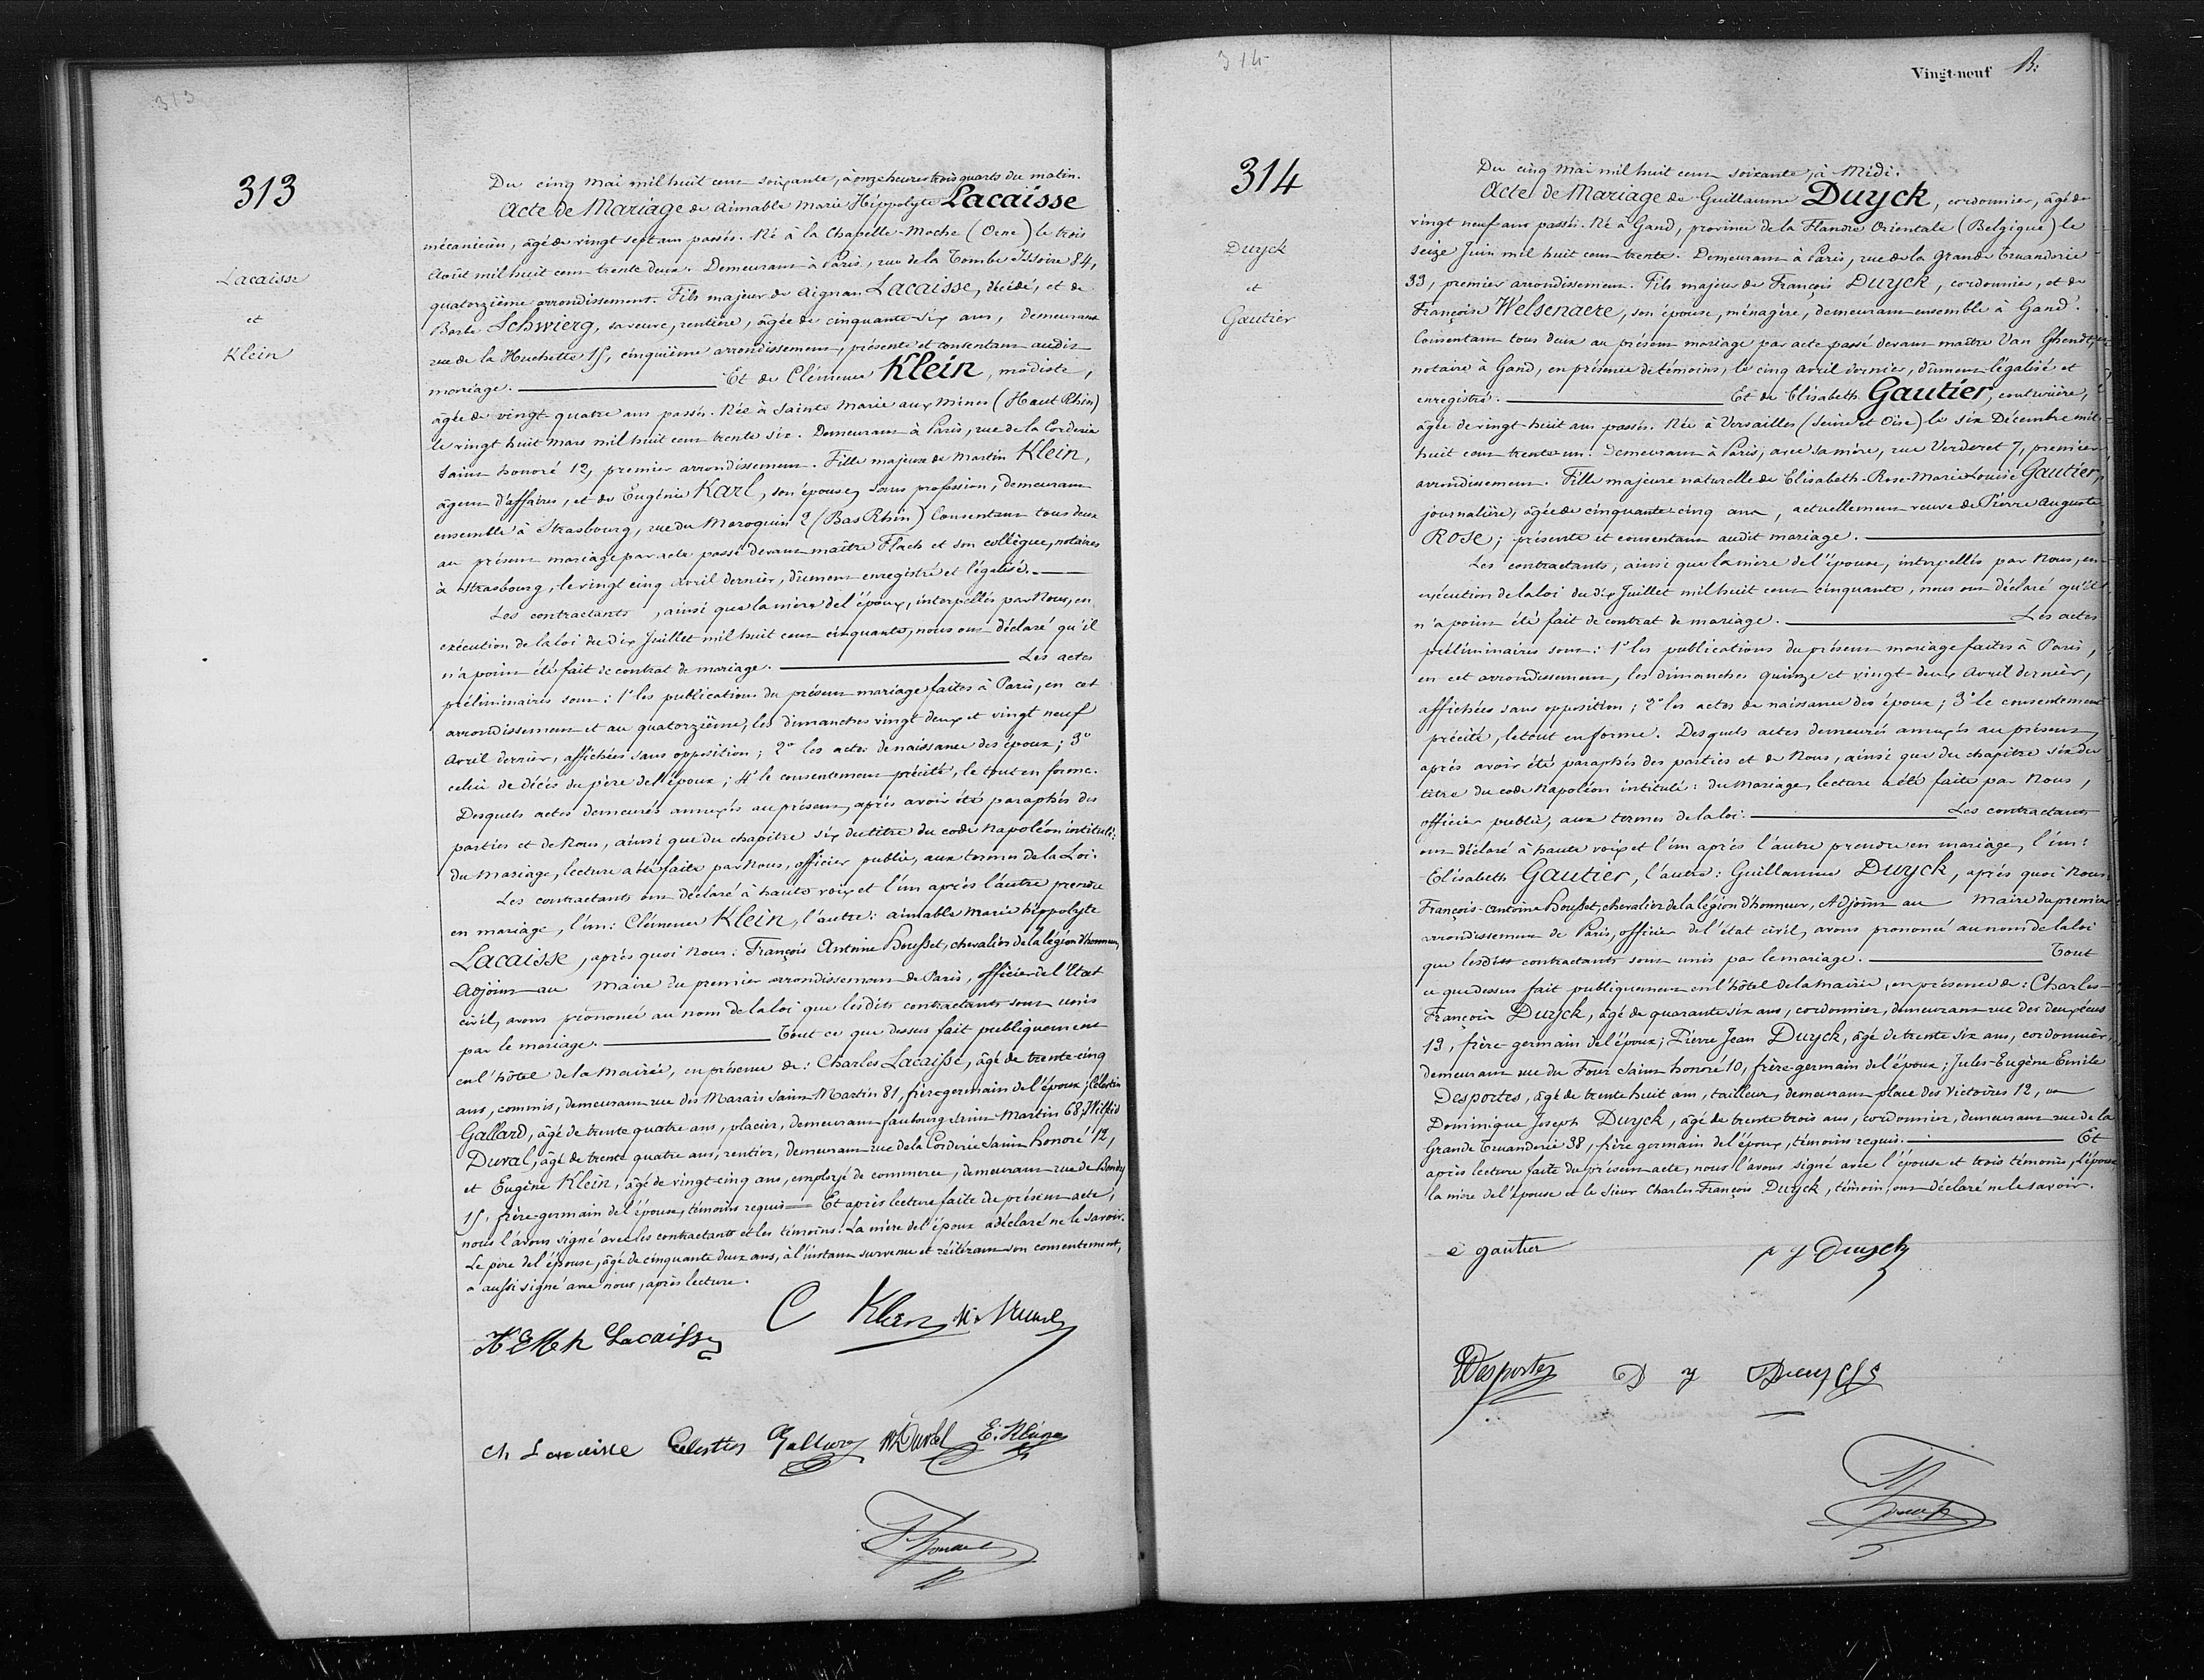 313
313
Lacaisse
et
Klein
Du cinq mai mil huit cent soixante, à onze heures trois quarts du matin.
Acte de Mariage de Aimable Marie Hippolyte Lacaisse
mécanicien, âgé de vingt sept ans passés. Né à la Chapelle-Moche (Orne) le trois
Août mil huit cent trente deux. Demeurant à Paris, rue de la Tombe Issoire 84,
quatorzième arrondissement. Fils majeur de Aignan Lacaisse, décédé, et de
Barbe Schwierg, sa veuve, rentière, âgée de cinquante-six ans, demeurant
rue de la Huchette 15, cinquième arrondissement, présente et consentant audit
mariage. Et de Clémence Klein, modiste,
âgée de vingt-quatre ans passés. Née à Sainte Marie aux Mines (Haut Rhin)
le vingt huit mars mil huit cent trente six. Demeurant à Paris, rue de la Corderie
Saint honoré 12, premier arrondissement. Fille majeure de Martin Klein,
agent d'affaires, et de Eugénie Karl, son épouse, sans profession, demeurant
ensemble à Strasbourg, rue du Maroquin 2 (Bas Rhin) Consentant tous deux
au présent mariage par acte passé devant maître Flach et son collègue, notaires
à Strasbourg, le vingt cinq avril dernier, dûment enregistré et légalisé.
Les contractants, ainsi que la mère de l'époux, interpellés par Nous, en
exécution de la loi du dix Juillet mil huit cent cinquante, nous ont déclaré qu'il
n'a point été fait de contrat de mariage. Les actes
préliminaires sont: 1° les publications du présent mariage faites à Paris, en cet
arrondissement et au quatorzième, les dimanches vingt deux et vingt neuf
Avril dernier, affichées sans opposition; 2° les actes de naissance des époux; 3°
celui de décès du père de l'époux; 4° le consentement précité, le tout en forme.
Desquels actes demeurés annexés au présent, après avoir été paraphés des
parties et de Nous, ainsi que du chapitre six du titre du code Napoléon intitulé:
du Mariage, lecture a été faite par Nous, officier public, aux termes de la Loi.
Les contractants ont déclaré à haute voix et l'un après l'autre prendre
en mariage, l'un: Clémence Klein, l'autre: aimable Marie hippolyte
Lacaisse, après quoi Nous: François Antoine Housset, chevalier de la légion d'honneur,
Adjoint au Maire du premier arrondissement de Paris, officier de l'Etat
civil, avons prononcé au nom de la loi que lesdits contractants sont unis
par le mariage. Tout ce que dessus fait publiquement
en l'hôtel de la Mairie, en présence de: Charles Lacaisse, âgé de trente-cinq
ans, commis, demeurant rue des Marais Saint-Martin 81, frère germain de l'époux; Célestin
Gallard, âgé de trente quatre ans, placier, demeurant faubourg Saint Martin 68; Wilfrid
Duval, âgé de trente quatre ans, rentier, demeurant rue de la Corderie Saint honoré 12,
et Eugène Klein, âgé de vingt-cinq ans, employé de commerce, demeurant rue de Bondy
15, frère germain de l'épouse, témoins requis. Et après lecture faite du présent acte,
nous l'avons signé avec les contractants et les témoins. La mère de l'époux a déclaré ne le savoir.
Le père de l'épouse, âgé de cinquante deux ans, à l'instant survenu et réitérant son consentement,
a aussi signé avec nous, après lecture.
C Klein
Lacaisse
ch Lacaisse Celestin Gallard W Duval E. Klein
314
Vingt-neuf
314
Duyck
et
Gautier
Du cinq Mai mil huit cent soixante, à Midi.
Acte de Mariage de Guillaume Duyck, cordonnier, âgé de
vingt neuf ans passés. Né à Gand, province de la Flandre Orientale (Belgique) le
seize Juin mil huit cent trente. Demeurant à Paris, rue de la Grande Truanderie
33, premier arrondissement. Fils majeur de François Duyck, cordonnier, et de
Françoise Welsenaere, son épouse, ménagère, demeurant ensemble à Gand.
Consentant tous deux au présent mariage par acte passé devant maître Van Ghendt,
notaire à Gand, en présence de témoins, le cinq avril dernier, dûment légalisé et
enregistré. Et de Elisabeth Gautier, couturière,
âgée de vingt-huit ans passés. Née à Versailles (Seine et Oise) le six Décembre mil
huit cent trente-un. Demeurant à Paris, avec sa mère, rue Verderet 7, premier
arrondissement. Fille majeure naturelle de Elisabeth-Rose-Marie-Louise Gautier,
journalière, âgée de cinquante-cinq ans, actuellement veuve de Pierre Auguste
Rose; présente et consentant audit mariage.
Les contractants, ainsi que la mère de l'épouse, interpellés par Nous, en
exécution de la loi du dix Juillet mil huit cent cinquante, nous ont déclaré qu'il
n'a point été fait de contrat de mariage. Les actes
préliminaires sont: 1° les publications du présent mariage faites à Paris,
en cet arrondissement, les dimanches quinze et vingt-deux Avril dernier,
affichées sans opposition; 2° les actes de naissance des époux; 3° le consentement
précité, le tout en forme. Desquels actes demeurés annexés au présent,
après avoir été paraphés des parties et de Nous, ainsi que du chapitre six du
titre du code Napoléon intitulé: du Mariage, lecture a été faite par Nous,
officier public, aux termes de la loi. Les contractants
ont déclaré à haute voix et l'un après l'autre prendre en mariage, l'un:
Elisabeth Gautier, l'autre: Guillaume Duyck, après quoi Nous:
François-Antoine Housset, chevalier de la légion d'honneur, Adjoint au Maire du premier
arrondissement de Paris, officier de l'état civil, avons prononcé au nom de la loi
que lesdits contractants sont unis par le mariage. Tout
ce que dessus fait publiquement en l'hôtel de la Mairie, en présence de: Charles-
François Duyck, âgé de quarante six ans, cordonnier, demeurant rue des deux écus
19, frère germain de l'époux; Pierre Jean Duyck, âgé de trente six ans, cordonnier,
demeurant rue du Four Saint honoré 10, frère germain de l'époux; Jules-Eugène Emile
Desportes, âgé de trente huit ans, tailleur, demeurant place des Victoires 12, et
Dominique Joseph Duyck, âgé de trente trois ans, cordonnier, demeurant rue de la
Grande Truanderie 38, frère germain de l'époux, témoins requis. Et
après lecture faite du présent acte, nous l'avons signé avec l'épouse et trois témoins, L'époux
la mère de l'épouse et le Sieur Charles-François Duyck, témoin, ont déclaré ne le savoir.
e gautier p j Duyck
Desportes D j Duyck